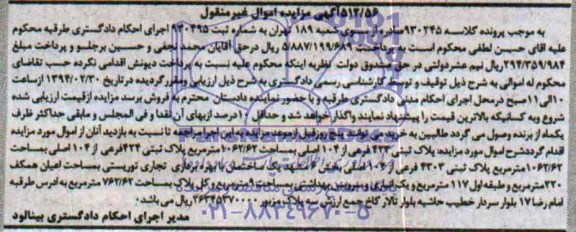 ۵۱۳/۵۶ آگهی مزایده اموال غیرمنقول
به موجب پرونده کلاسه ۹۳۰۲۴۵ صادره از سوی شعبه ۱۸۹ تهران به شماره ثبت ۹۳۰۴۹۵ اجرای احکام دادگستری طرقبه محکوم
علیه آقای حسن لطفی محکوم است به پرداخت ۵/۸۸۷/۱۹۹/۶۸۹ ریال درحق آقایان محمد نجفی و حسین برجلو و پرداخت مبلغ
۲۹۴/۳۵۹/۹۸۴ ریال نیم عشردولتی در حق صندوق دولت نظربه اینکه محکوم علیه نسبت به پرداخت دیونش اقدامی نکرده حسب تقاضای
محکوم له اموالی به شرح ذیل توقیف و توسط کارشناسی رسمی دادگستری به شرح ذیل ارزیابی ومقررگردیده در تاریخ ۱۳۹۴/۰۲/۳۰ ازساعت
۱۰الی۱۱صبح درمحل اجرای احکام مدنی دادگستری طرقبه و با حضور نماینده دادستان محترم به فروش برسد مزایده ازقیمت ارزیابی شده
شروع وبه کسانیکه بالاترین قیمت را پیشنهاد نمایند واگذار خواهد شد و حداقل ۱۰درصد ازبهای آن نقدا و فی المجلس و مابقی حداکثر ظرف
یکماه از برنده وصول می گردد طالبین به خرید می توانند پنج روز قبل ازموعد مزایده به این اجرا مراجعه تا نسبت به بازدید آنان از اموال مورد مزایده
اقدام گرددشرح اموال مورد مزایده: پلاک ثبتی ۴۲۳ فرعی از ۱۰۴ اصلی بمساحت ۱۰۶۲/۶۲ مترمربع پلاک ثبتی ۴۲۴فرعی از ۱۰۴ اصلی بمساحت
۱۰۶۲/۶۲مترمربع پلاک ثبتی ۴۳۰۳ فرعی از ۱۰۴ اصلی بخش ۶ مشهد یک ساختمان با بهره برداری تجاری توریستی بمساحت اعیان همکف
۲۲۰مترمربع و طبقه اول ۱۱۷ مترمربع و یک انباری و سرویس بهداشتی مترمربع و کل زمین بمساحت ۷۶۲/۶۲ مترمربع به ادرس طرقبه
امام رضا ۱۷ بلوار سردار خطیب حاشیه بلوار تالار کاخ جمع ارزش سه پلاک مزبور ۲۶۳۴۵۳۷۰۰۰۰ریال می باشد.
مدیر اجرای احکام دادگستری بینالود
۰۲۱-۸۸۳۴۹۶۷۰-۵